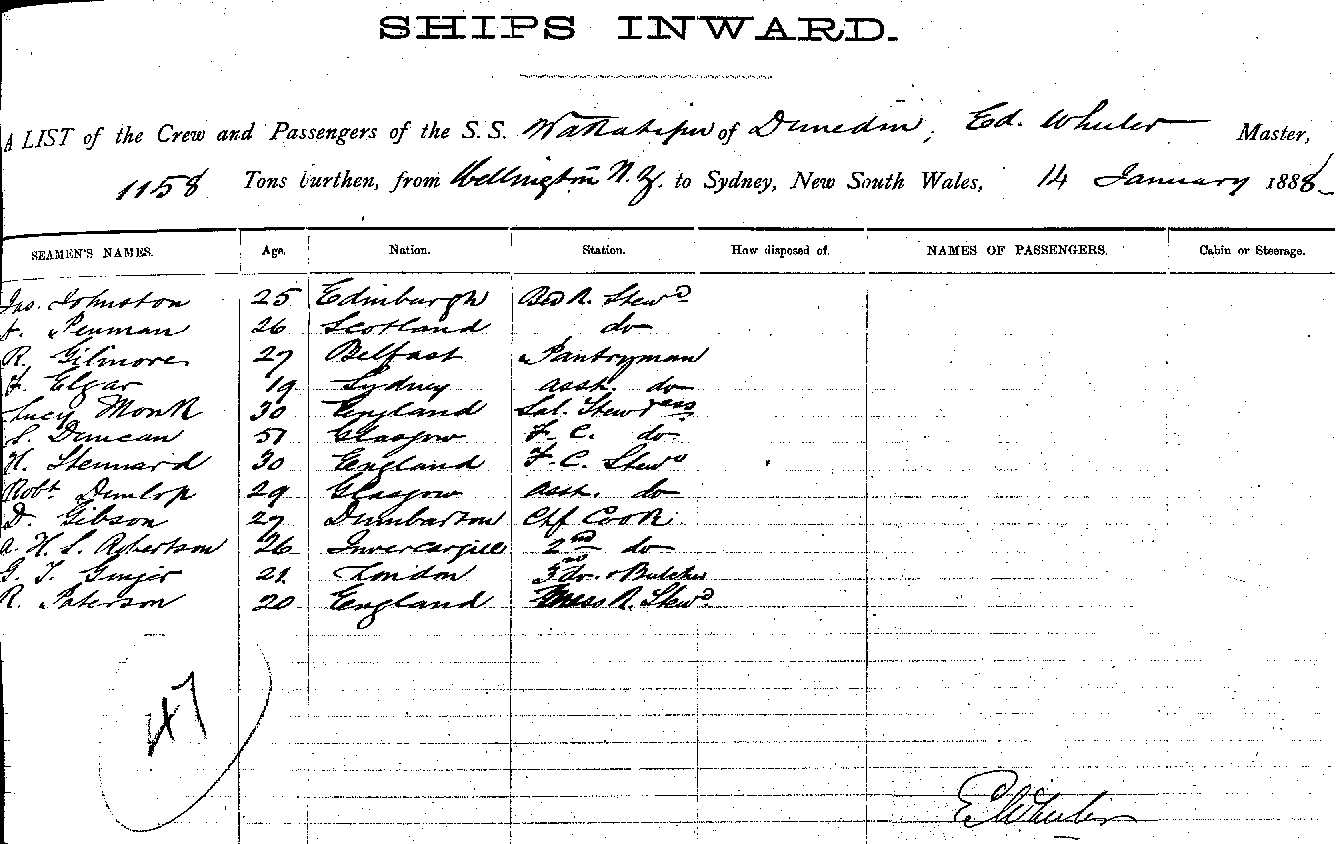 SHIPS INWARD.
A LIST of the Crew and Passengers of the S. S. Wakatipu of Dunedin, Ed. Wheeler Master,
1158 Tons burthen, from Wellington N. Z. to Sydney, New South Wales, 14 January 1888
SEAMEN'S NAMES. Age. Nation. Station. How disposed of. NAMES OF PASSENGERS. Cabin or Steerage.
Jas. Johnston 25 Edinburgh Bed R. Stewd
Penman 26 Scotland do
R. Gilmore 27 Belfast Pantryman
F. Elgar 19 Sydney asst. do
Lucy Monk 30 England Sal. Stewdess
S. Duncan 51 Glasgow F. C. do
H. Stennard 30 England F. C. Stewd
Robt Dunlop 29 Glasgow asst. do
D. Gibson 27 Dumbarton Chf Cook
A. H. S. Robertson 26 Invercargill 2nd do
G. T. Ginger 21 London 3rd do. & Butcher
R. Paterson 20 England Mess R. Stewd
47
E Wheeler